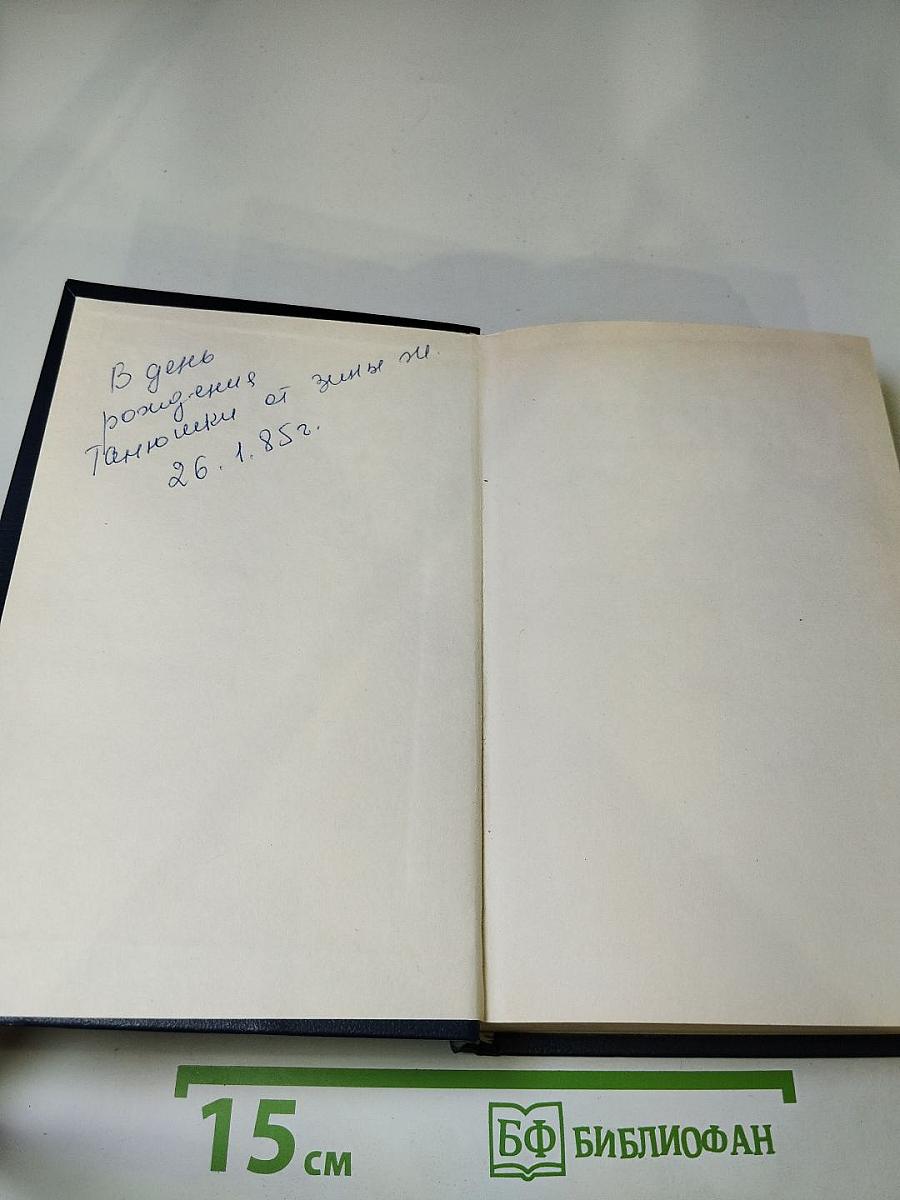 В день
рождения
Танюшки от зины ж.
26.1.85г.
15 см
БФ БИБЛИОФАН